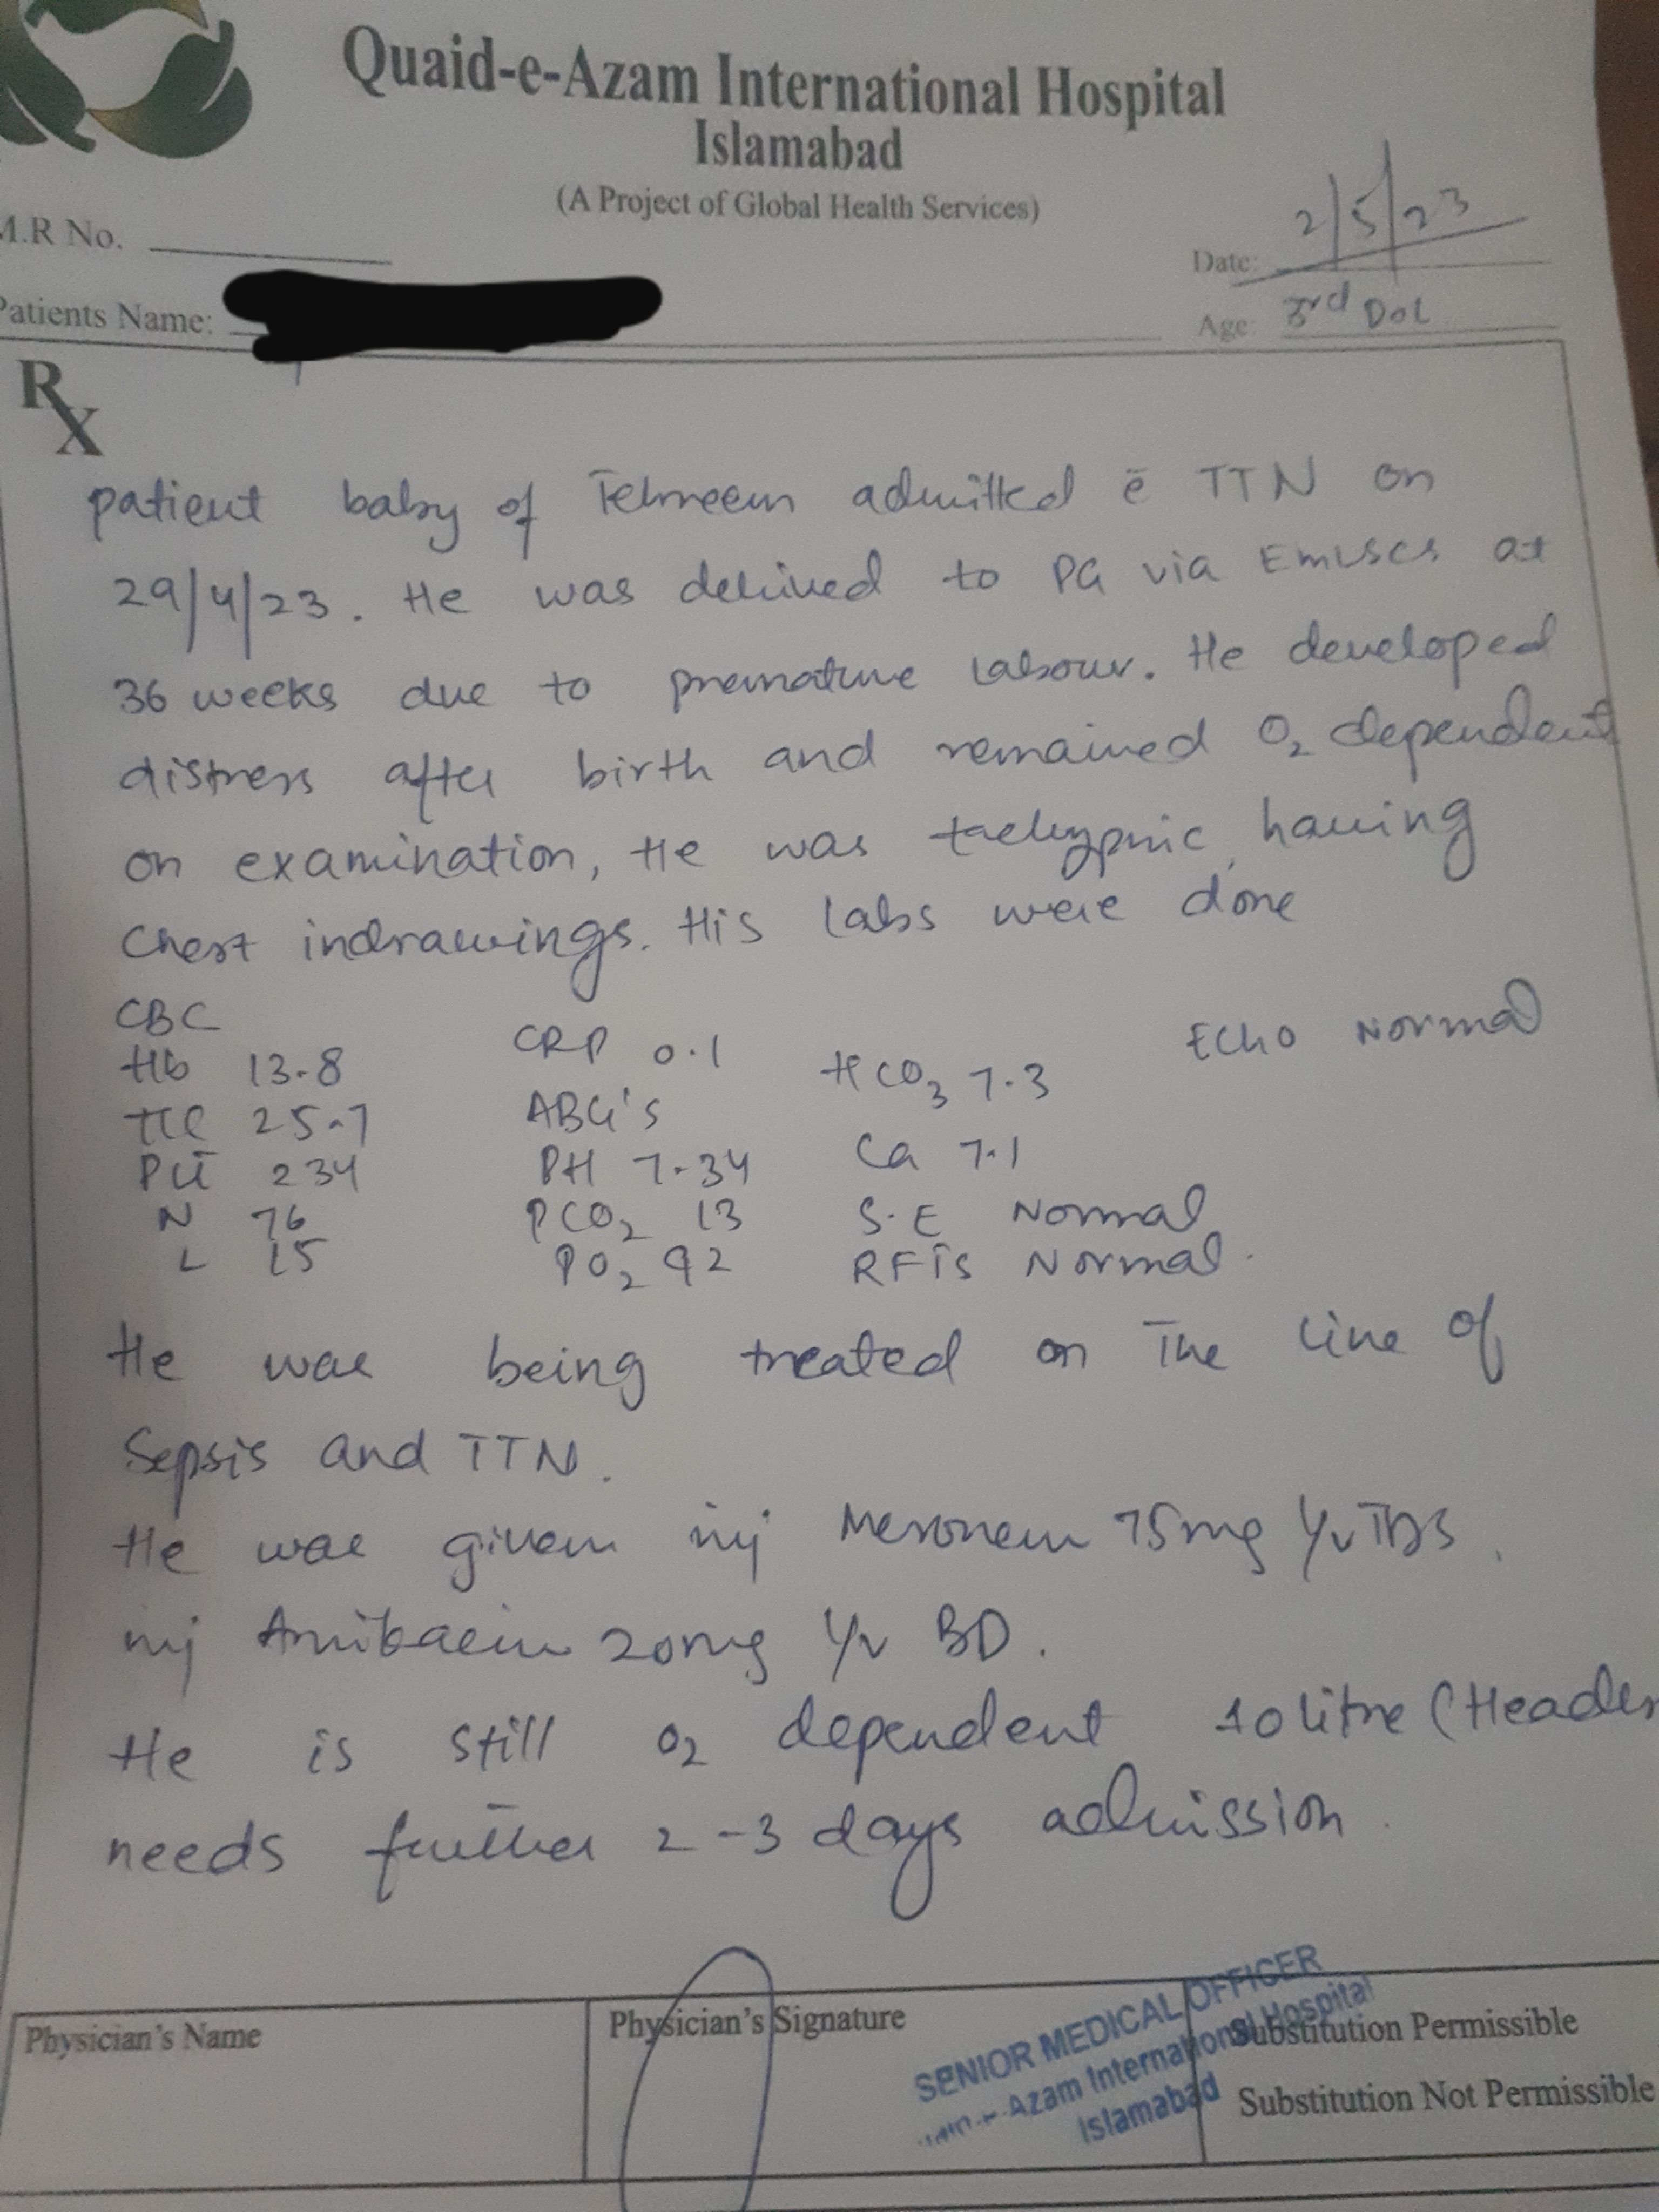 Quaid-e-Azam International Hospital
Islamabad
(A Project of Global Health Services)
M.R No.
Date: 2/5/23
Patients Name:
Age: 3rd DOL
Rx
patient baby of admitted c̄ TTN on
29/4/23. He was delived to PG via EmLSCS at
36 weeks due to premature labour. He developed
distress after birth and remained O2 dependent
on examination, He was tachypnic, having
Chest indrawings. His labs were done
CBC
Hb 13.8 CRP 0.1 HCO3 7.3 Echo Normal
TLC 25.7 ABG's Ca 7.1
Plt 234 PH 7.34
N 76 PCO2 13 S.E Normal
L 15 PO2 92 RFTs Normal.
He was being treated on the line of
Sepsis and TTN.
He was given inj Meronem 75mg I/v TDS.
inj 20mg I/v BD.
He is still O2 dependent 10 litre (Header
needs further 2-3 days admission.
Physician's Name
Physician's Signature
SENIOR MEDICAL OFFICER
Azam International Hospital
Islamabad
Substitution Permissible
Substitution Not Permissible